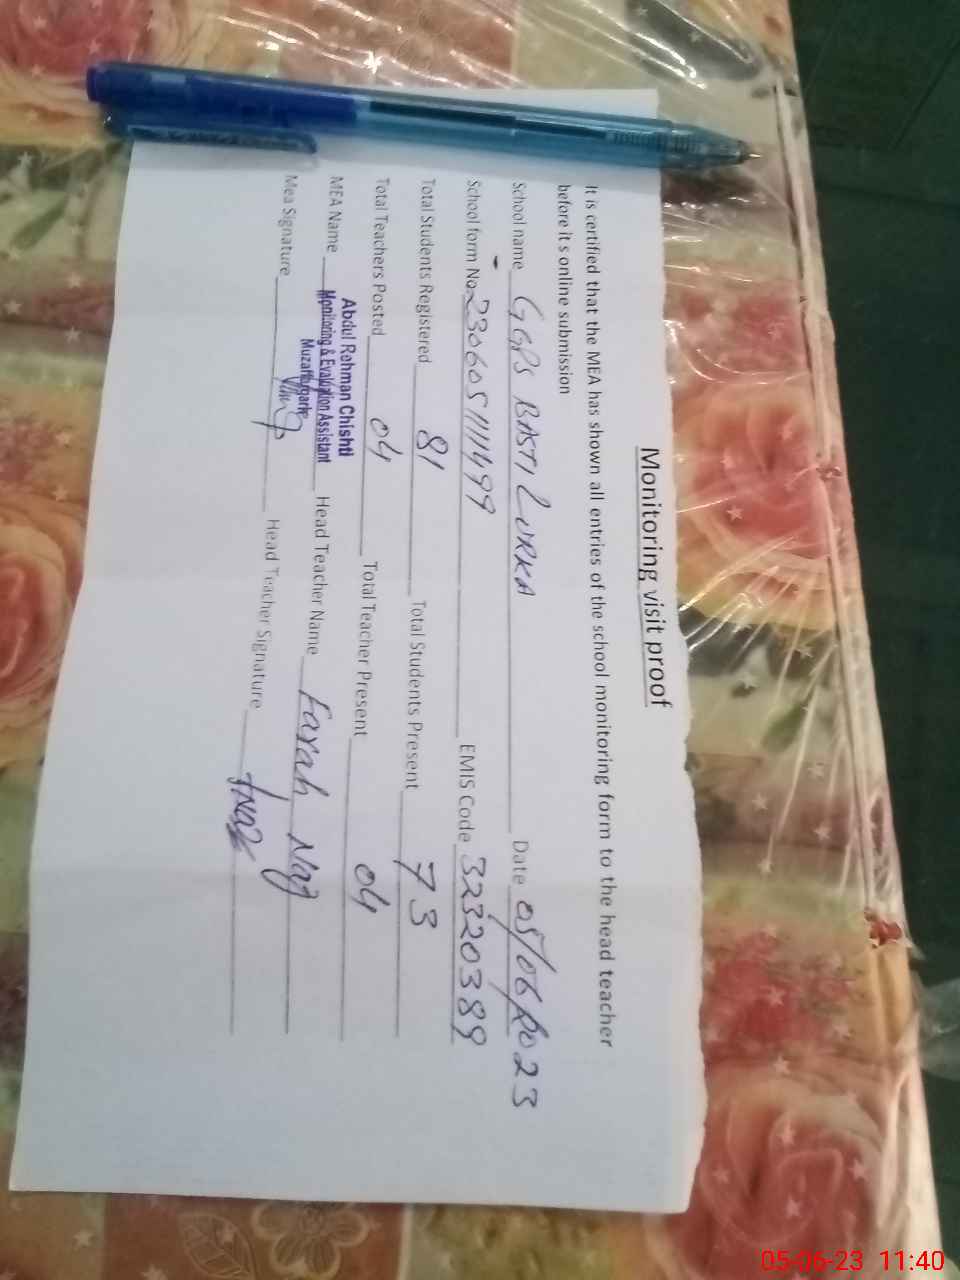 Monitoring visit proof
It is certified that the MEA has shown all entries of the school monitoring form to the head teacher
before it s online submission
School name GGPS BASTI LURKA Date 05/06/2023
School form No. EMIS Code 32320389
Total Students Registered 81 Total Students Present 73
Total Teachers Posted 04 Total Teacher Present 04
MEA Name Abdul Rahman Chishti Head Teacher Name Farah Naz
Monitoring & Evaluation Assistant
Muzaffargarh
Mea Signature Head Teacher Signature FNaz
05-06-23 11:40